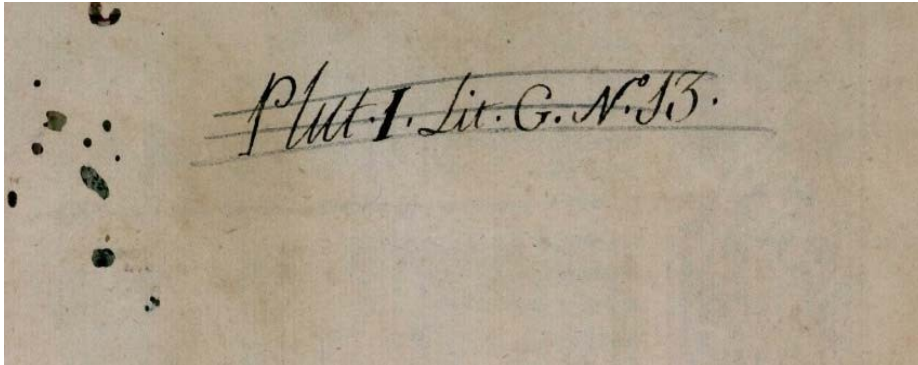 Plut. I. Lit. G. N. 13.